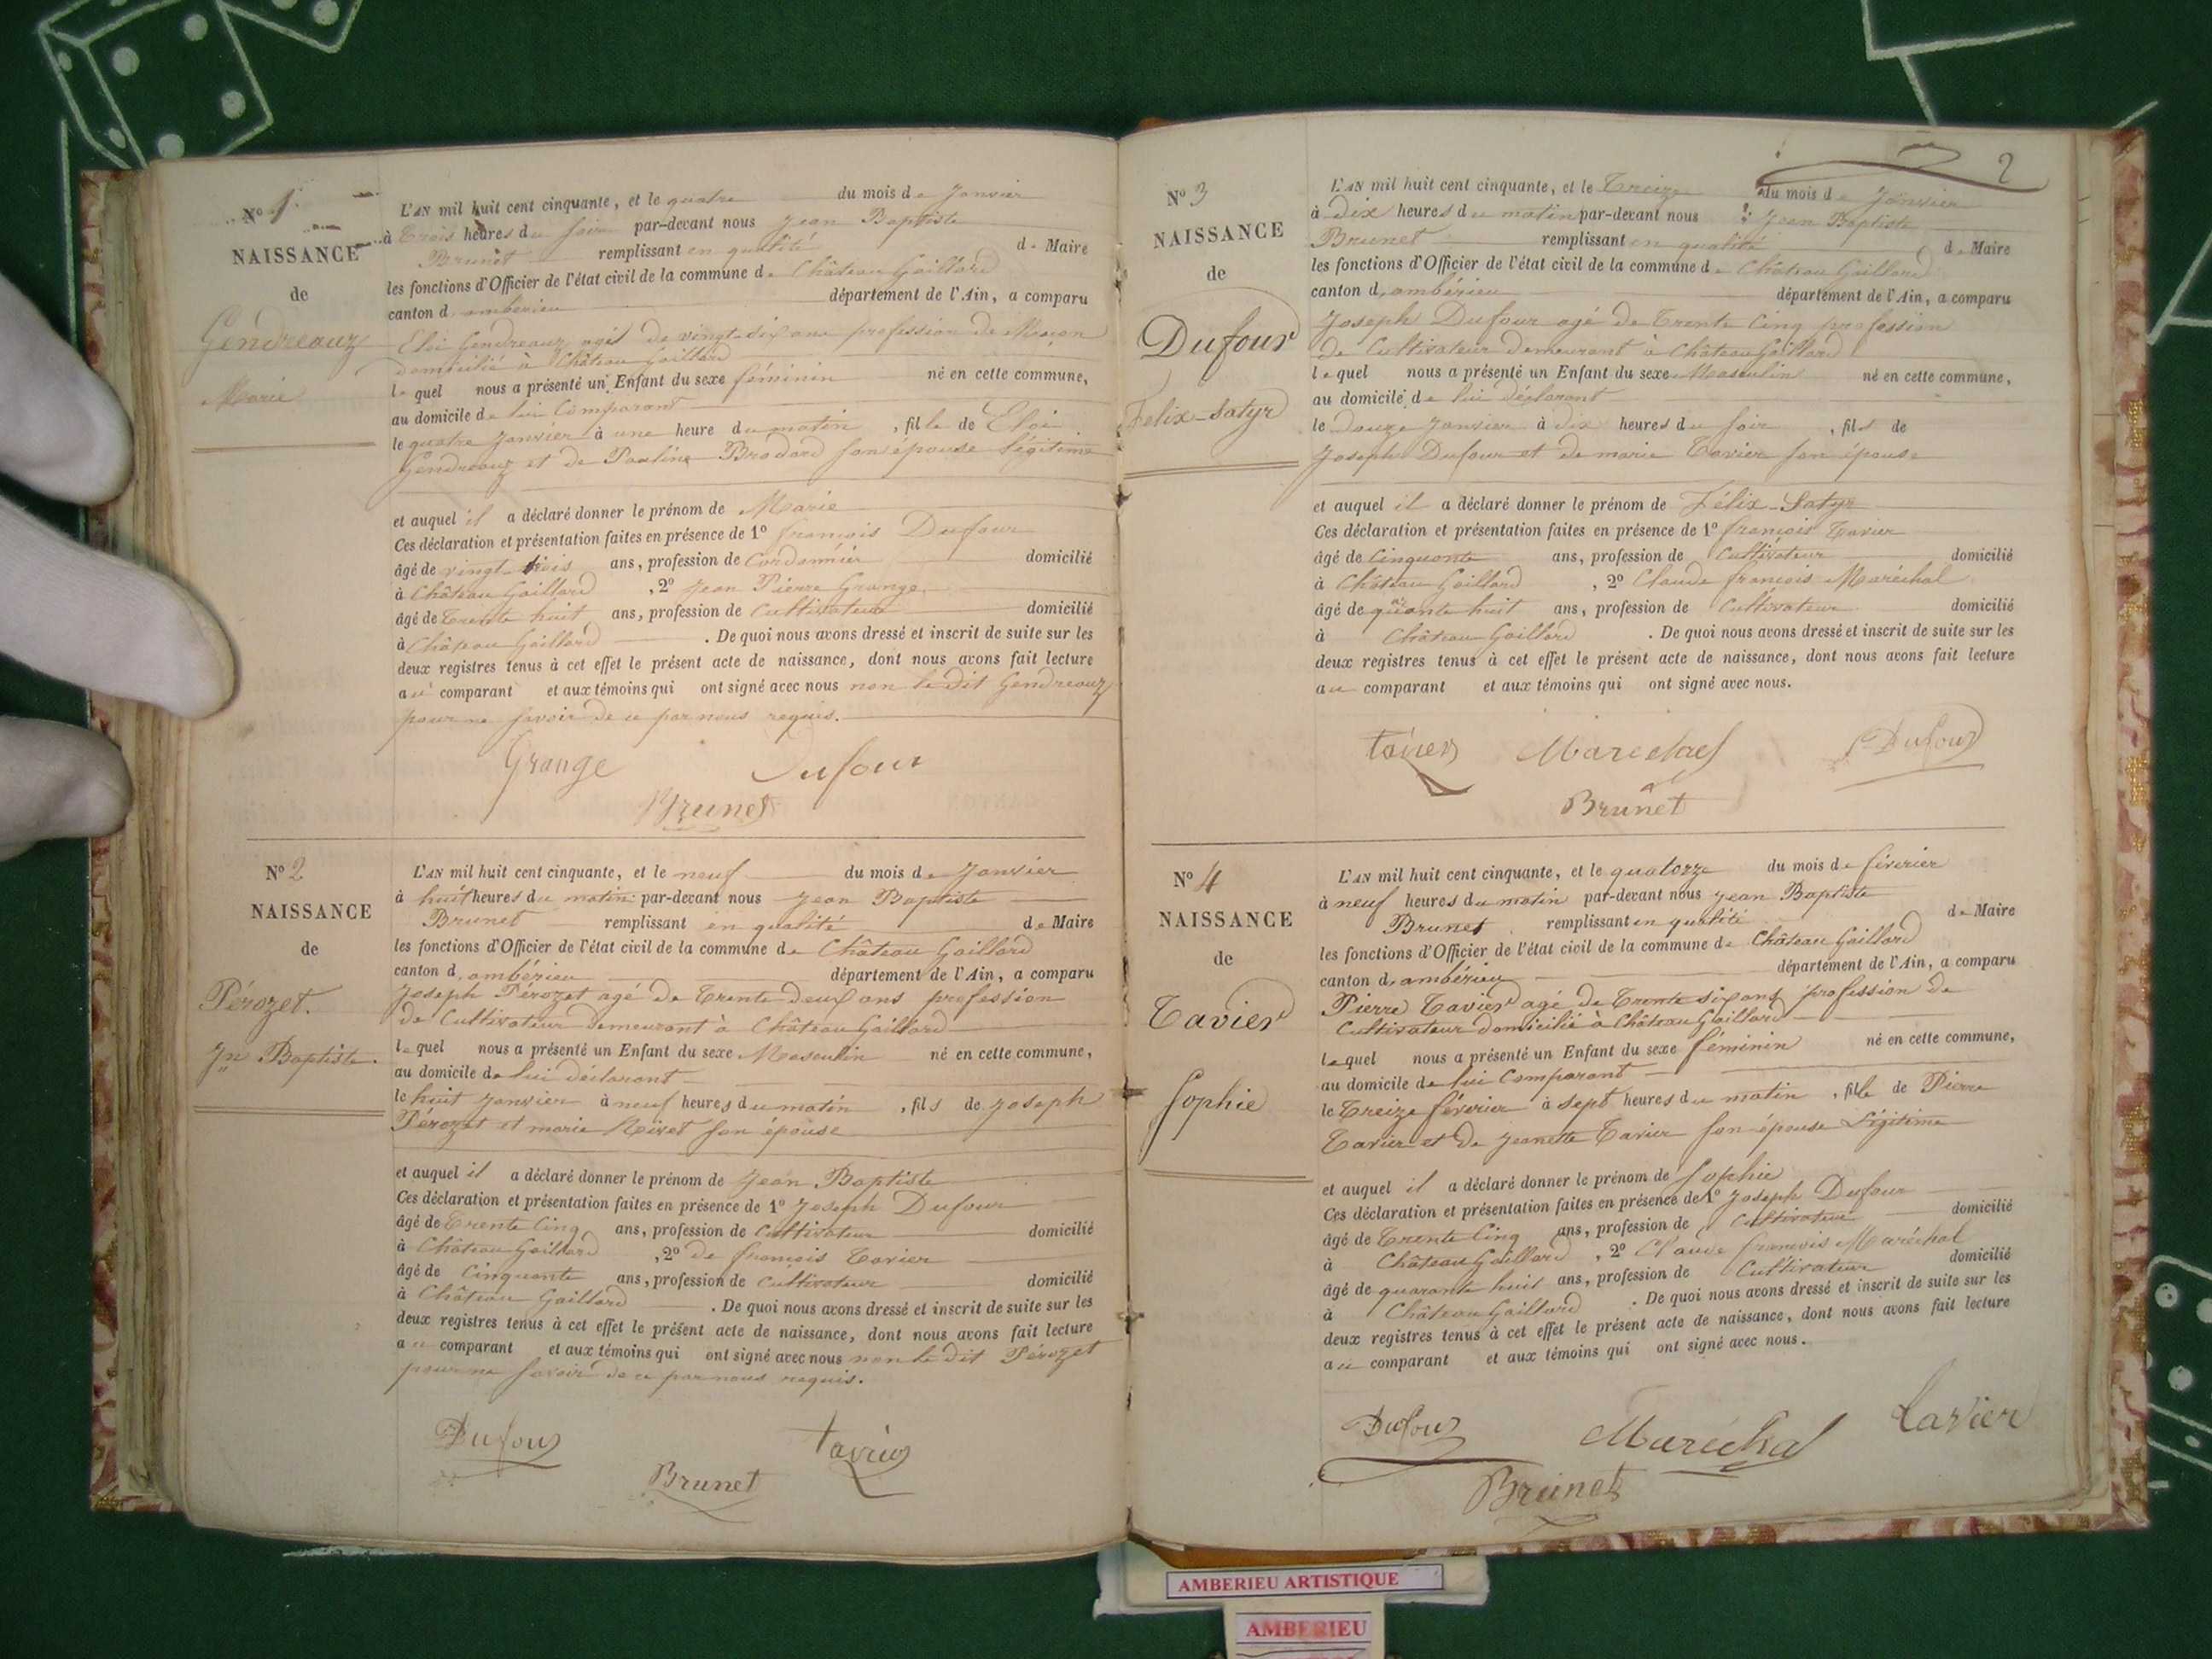 Nº 1.
NAISSANCE
de
Gendreaux
Marie
L'AN mil huit cent cinquante, et le quatre du mois de Janvier
à trois heures du soir par-devant nous Jean Baptiste
Brunet remplissant en qualité de Maire
les fonctions d'Officier de l'état civil de la commune de Château Gaillard
canton d'ambérieu département de l'Ain, a comparu
Eloi Gendreaux agé de vingt-six ans profession de Maçon
domicilié à Château Gaillard
lequel nous a présenté un Enfant du sexe féminin né en cette commune,
au domicile de lui Comparant
le quatre Janvier à une heure du matin, fille de Eloi
Gendreaux et de Pauline Brodard son épouse légitime
et auquel il a déclaré donner le prénom de Marie
Ces déclaration et présentation faites en présence de 1º françois Dufour
âgé de vingt-trois ans, profession de Cordonnier domicilié
à Château Gaillard, 2º Jean Pierre Grange
âgé de trente huit ans, profession de Cultivateur domicilié
à Château Gaillard. De quoi nous avons dressé et inscrit de suite sur les
deux registres tenus à cet effet le présent acte de naissance, dont nous avons fait lecture
au comparant et aux témoins qui ont signé avec nous non le dit Gendreaux
pour ne savoir de ce par nous requis.
Grange Dufour
Brunet
Nº 2
NAISSANCE
de
Pérozet.
Jn Baptiste.
L'AN mil huit cent cinquante, et le neuf du mois de Janvier
à huit heures du matin par-devant nous Jean Baptiste
Brunet remplissant en qualité de Maire
les fonctions d'Officier de l'état civil de la commune de Château Gaillard
canton d'ambérieu département de l'Ain, a comparu
Joseph Pérozet agé de Trente deux ans profession
de Cultivateur demeurant à Château Gaillard
lequel nous a présenté un Enfant du sexe Masculin né en cette commune,
au domicile de lui déclarant
le huit Janvier à neuf heures du matin, fils de Joseph
Pérozet et marie son épouse
et auquel il a déclaré donner le prénom de Jean Baptiste
Ces déclaration et présentation faites en présence de 1º Joseph Dufour
âgé de Trente Cinq ans, profession de Cultivateur domicilié
à Château Gaillard, 2º de françois Tavier
âgé de Cinquante ans, profession de Cultivateur domicilié
à Château Gaillard. De quoi nous avons dressé et inscrit de suite sur les
deux registres tenus à cet effet le présent acte de naissance, dont nous avons fait lecture
au comparant et aux témoins qui ont signé avec nous non le dit Pérozet
pour ne savoir de ce par nous requis.
Dufour tavier
Brunet
2
Nº 3
NAISSANCE
de
Dufour
Felix-Satyr
L'AN mil huit cent cinquante, et le Treize du mois de Janvier
à dix heures du matin par-devant nous Jean Baptiste
Brunet remplissant en qualité de Maire
les fonctions d'Officier de l'état civil de la commune de Château Gaillard
canton d'ambérieu département de l'Ain, a comparu
Joseph Dufour agé de Trente Cinq profession
de Cultivateur demeurant à Château Gaillard
lequel nous a présenté un Enfant du sexe Masculin né en cette commune,
au domicile de lui déclarant
le Douze Janvier à dix heures du soir, fils de
Joseph Dufour et de marie Tavier son épouse
et auquel il a déclaré donner le prénom de Félix-Satyr
Ces déclaration et présentation faites en présence de 1º françois Tavier
âgé de Cinquante ans, profession de Cultivateur domicilié
à Château Gaillard, 2º Claude françois Maréchal
âgé de huit ans, profession de Cultivateur domicilié
à Château Gaillard. De quoi nous avons dressé et inscrit de suite sur les
deux registres tenus à cet effet le présent acte de naissance, dont nous avons fait lecture
au comparant et aux témoins qui ont signé avec nous.
tavier Marechal Dufour
Brunet
Nº 4
NAISSANCE
de
Tavier
Sophie
L'AN mil huit cent cinquante, et le quatorze du mois de féverier
à neuf heures du matin par-devant nous Jean Baptiste
Brunet remplissant en qualité de Maire
les fonctions d'Officier de l'état civil de la commune de Château Gaillard
canton d'ambérieu département de l'Ain, a comparu
Pierre Tavier agé de Trente six ans profession de
Cultivateur domicilié à Château Gaillard
lequel nous a présenté un Enfant du sexe féminin né en cette commune,
au domicile de lui Comparant
le Treize féverier à sept heures du matin, fille de Pierre
Tavier et de Jeanette Tavier son épouse légitime
et auquel il a déclaré donner le prénom de Sophie
Ces déclaration et présentation faites en présence de 1º Joseph Dufour
âgé de Trente Cinq ans, profession de Cultivateur domicilié
à Château Gaillard, 2º Claude françois Maréchal
âgé de quarante huit ans, profession de Cultivateur domicilié
à Château Gaillard. De quoi nous avons dressé et inscrit de suite sur les
deux registres tenus à cet effet le présent acte de naissance, dont nous avons fait lecture
au comparant et aux témoins qui ont signé avec nous.
Dufour Maréchal tavier
Brunet
AMBERIEU ARTISTIQUE
AMBERIEU